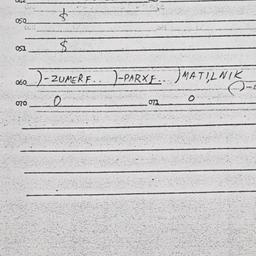 050 $
051 $
060 )-ZUMERF.. )-PARXF.. )MATILNIK
070 0 071 0